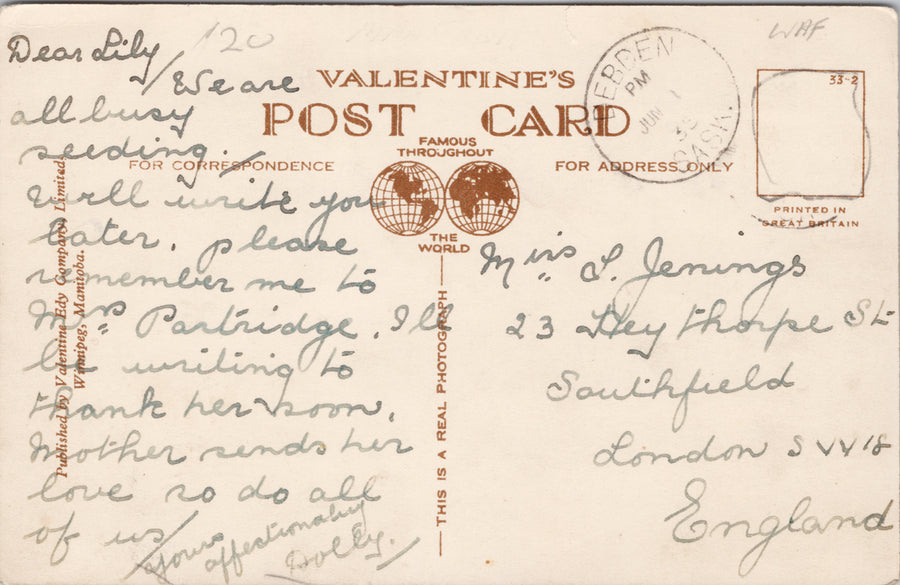 120
WAF
Dear Lily
We are
all busy
seeding.
Will write you
later, please
remember me to
Mrs Partridge, I'll
be writing to
thank her soon,
Mother sends her
love so do all
of us
Yours
affectionately
Dolly.
VALENTINE'S
POST CARD
FAMOUS
THROUGHOUT
THE
WORLD
FOR CORRESPONDENCE
FOR ADDRESS ONLY
DEBDEN
PM
JUN 1
SASK.
33-2
PRINTED IN
GREAT BRITAIN
Miss L. Jenings
23 Heythorpe St
Southfield
London SW18
England
THIS IS A REAL PHOTOGRAPH
Published by Valentine-Edy Company Limited,
Winnipeg, Manitoba.